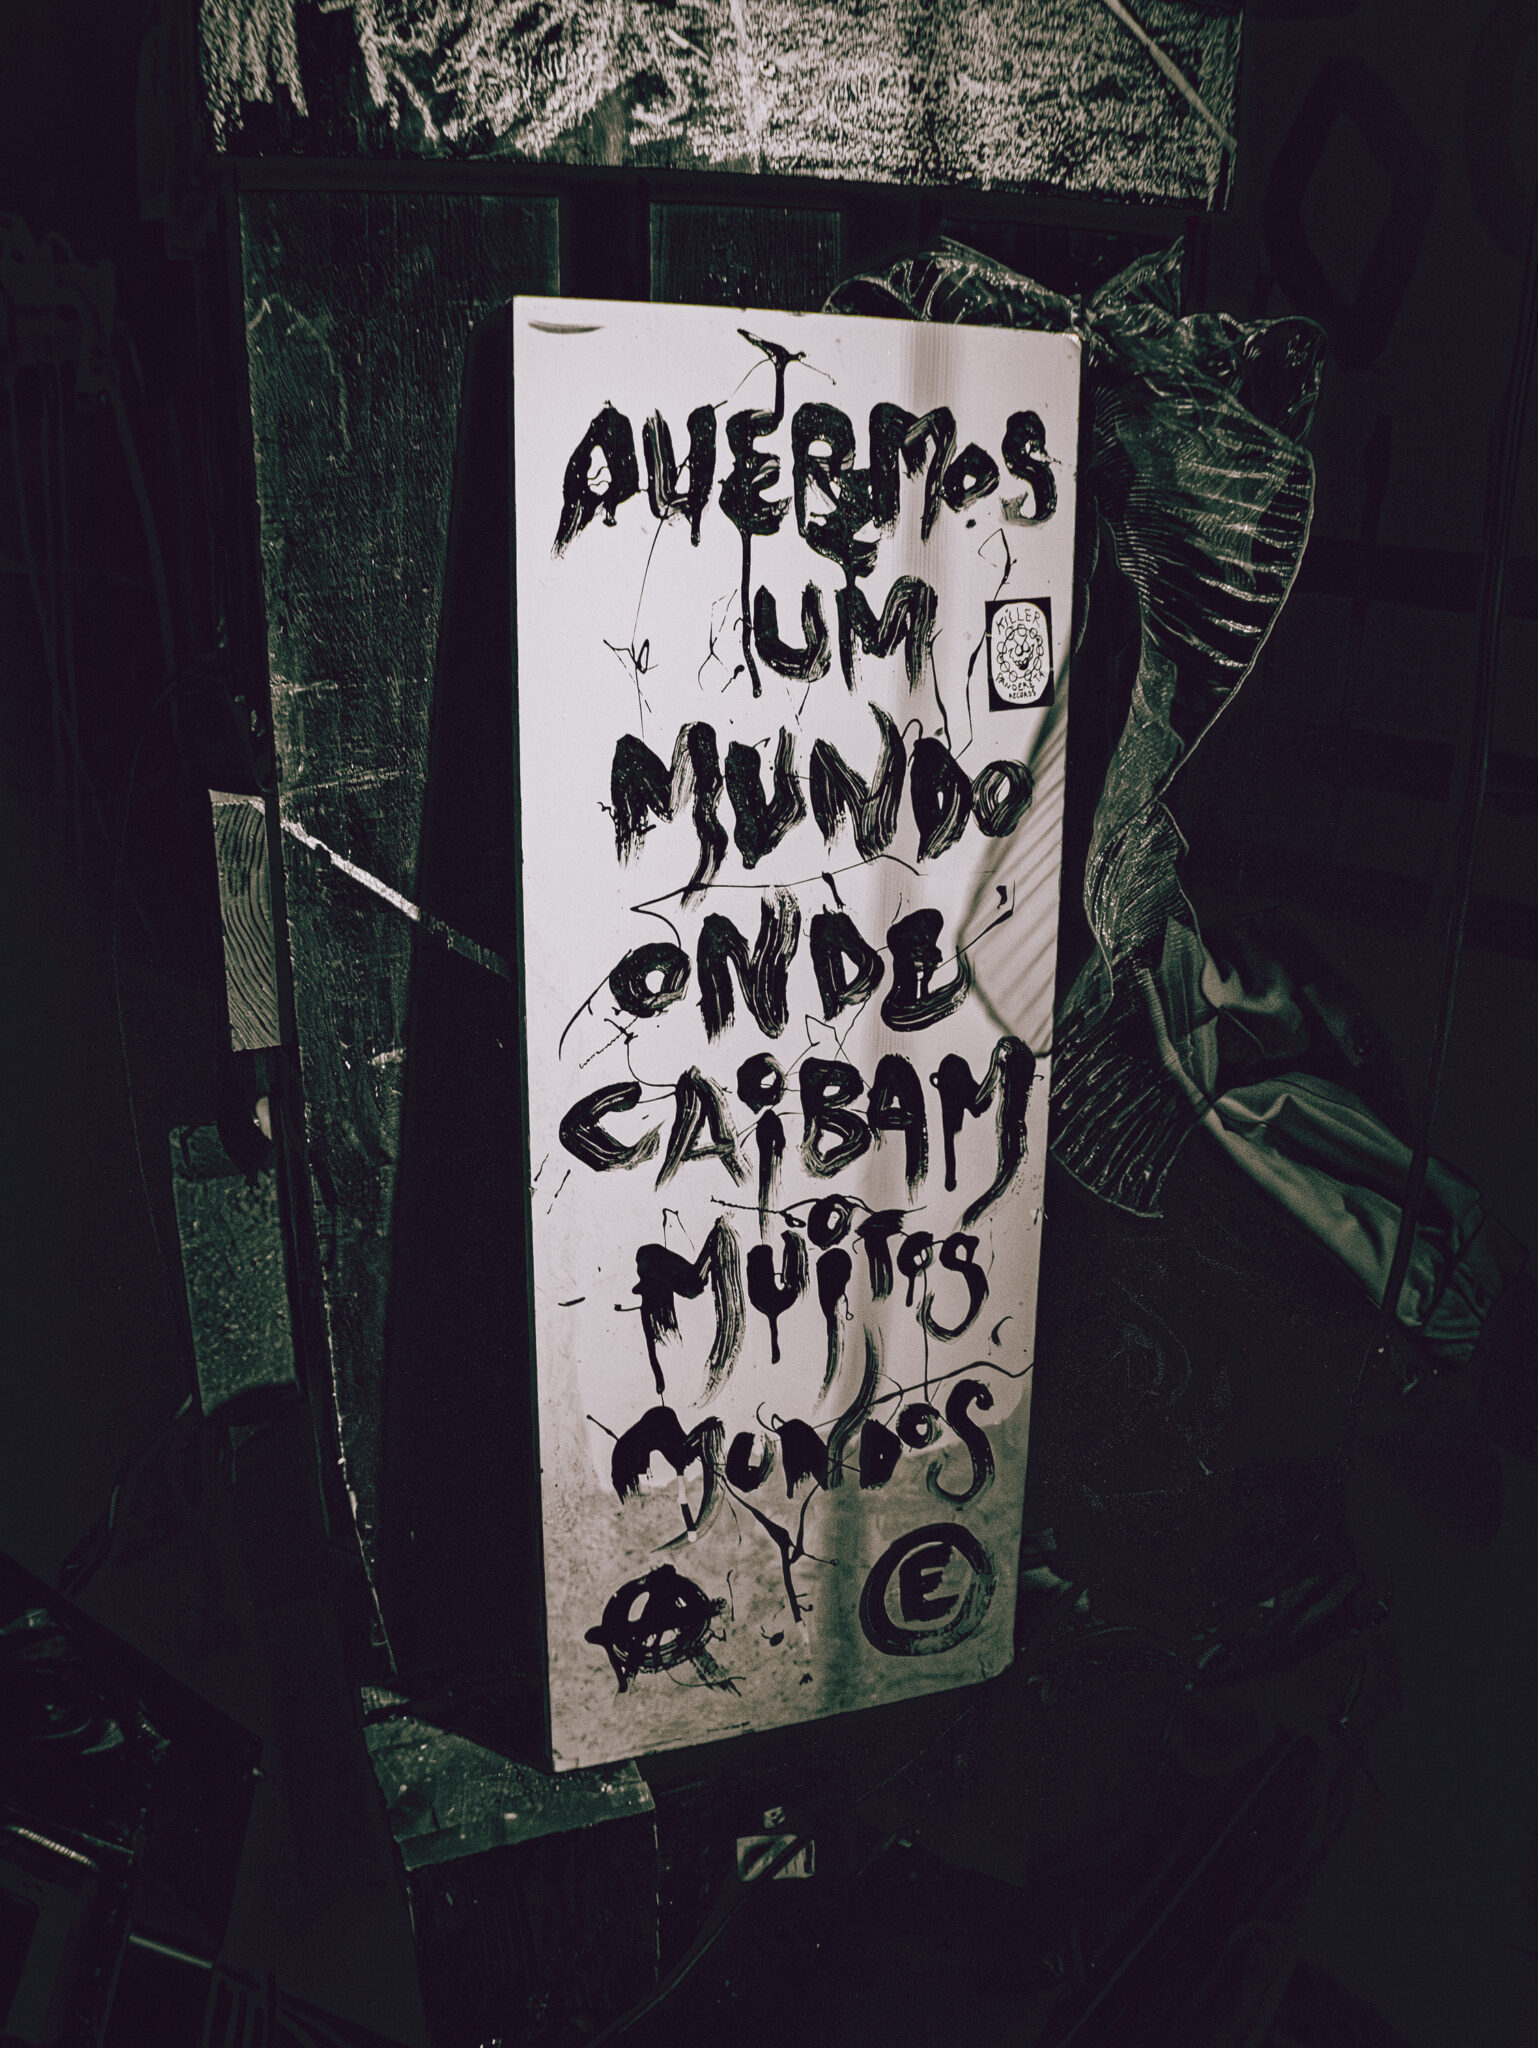 QUEREMOS
UM
MUNDO
ONDE
CAIBAM
MUITOS
MUNDOS
A
E
KILLER
PANDERETA
RECORDS